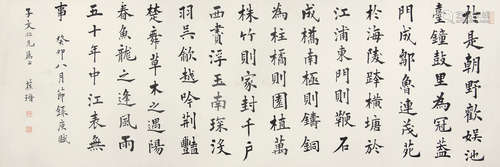 於是朝野歡娛池
臺鐘鼓里為冠蓋
門成鄒魯連茂苑
於海陵跨橫塘於
江浦東門則鞭石
成橋南極則鑄銅
為柱橘則園植萬
株竹則家封千戶
西賮浮玉南琛沒
羽吳歈越吟荊豔
楚舞草木之遇陽
春魚龍之逢風雨
五十年中江表無
事 癸卯八月節錄庾賦
子文仁兄屬